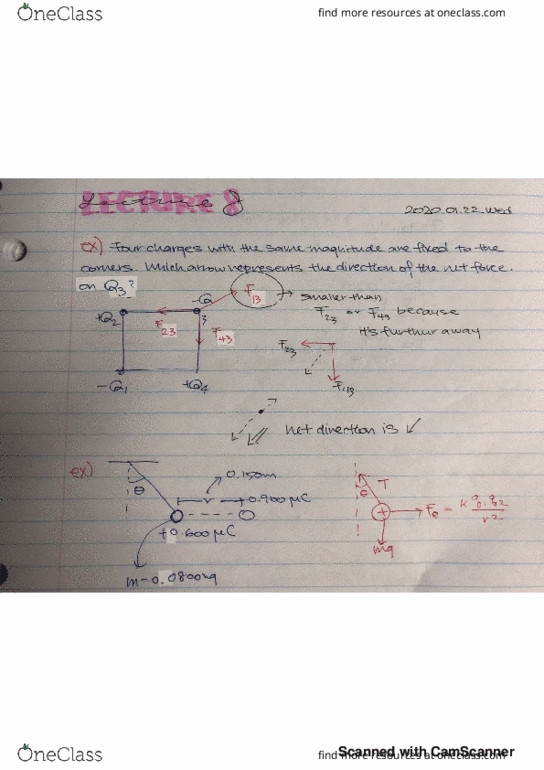 OneClass
find more resources at oneclass.com
LECTURE 8
2020.01.22.Wed
ex) Four charges with the same magnitude are fixed to the
corners. Which arrow represents the direction of the net force
on Q3?
-Q
F13
→ smaller than
F23 or F43 because
it's furthur away
+Q2
3
F23
F43
F23
F43
-Q1
+Q4
net direction is ↙
ex)
0.150m
θ
r
+0.900 μC
+0.600 μC
m=0.0800kg
θ
T
+
Fe = k q1 q2 / r²
mg
Scanned with CamScanner
OneClass
find more resources at oneclass.com